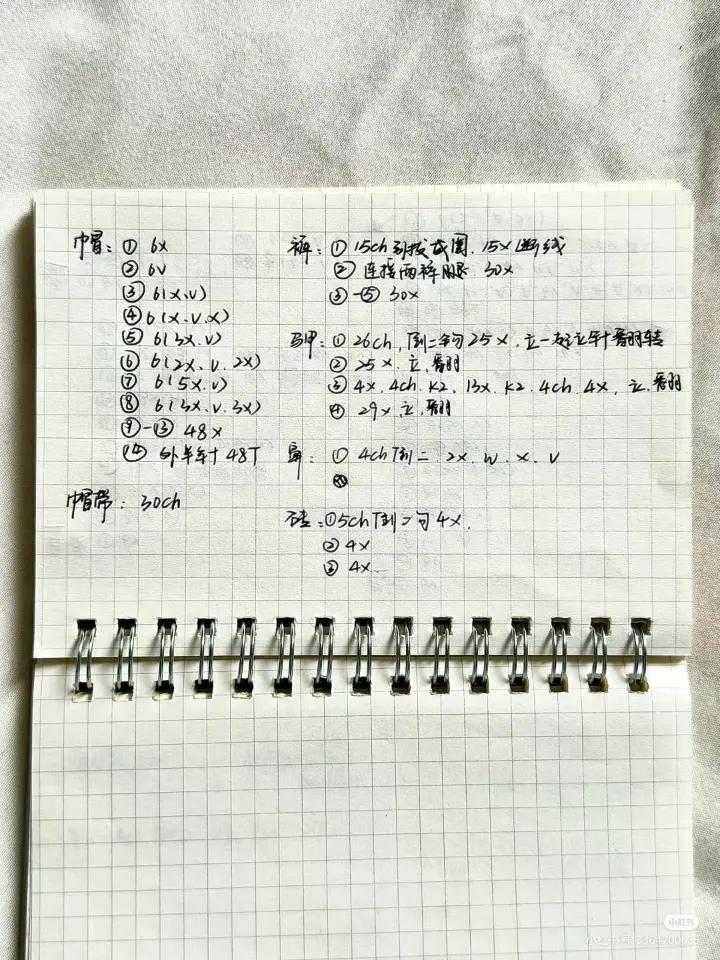 帽：① 6x
② 6v
③ 6(x.v)
④ 6(x.v.x)
⑤ 6(3x.v)
⑥ 6(2x.v.2x)
⑦ 6(5x.v)
⑧ 6(3x.v.3x)
⑨-⑬ 48x
⑭ 外半针48T
帽带：30ch
裤：① 15ch引拔成圈.15x断线
② 连接两裤腿 30x
③-⑤ 30x
马甲：① 26ch,倒二钩25x.立一起立针翻转
② 25x.立.翻
③ 4x.4ch.k2.13x.k2.4ch.4x,立.翻
④ 29x.立.翻
① 4ch倒二.2x.w.x.v
①5ch倒二勾4x.
② 4x
③ 4x
小红书